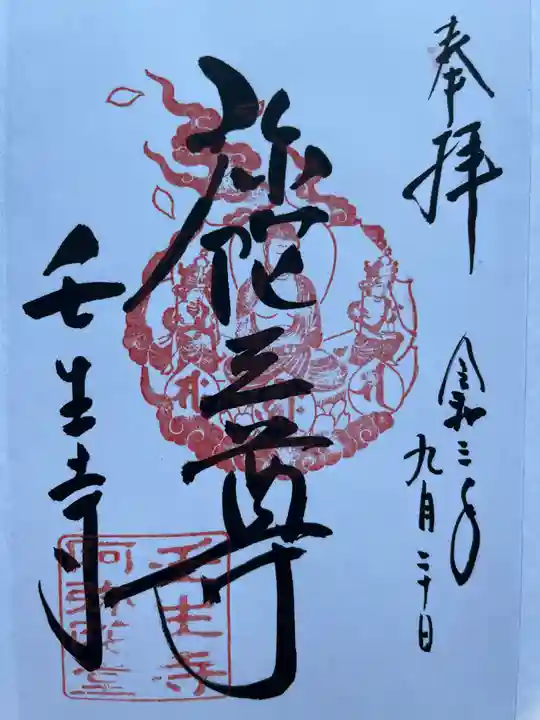 奉拝
令和三年
九月二十日
弥陀三尊
壬生寺
壬生寺
阿弥陀堂